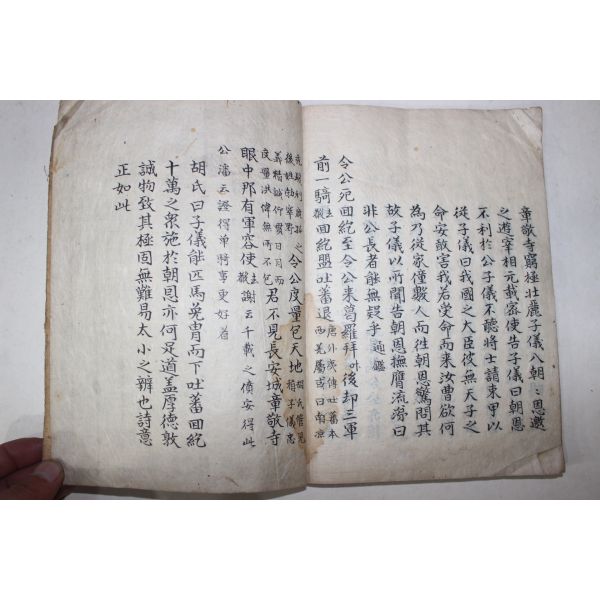 章敬寺窮極壯麗子儀入朝朝恩邀
之遊宰相元載密使告子儀曰朝恩
不利於公子儀不聽將士請束甲以
從子儀曰我國之大臣彼無天子之
命安敢害我若受命而來汝曹欲何
為乃從家僮數人而徃朝恩驚問其
故子儀以所聞告朝恩撫膺流涕曰
非公長者能無疑乎通鑑
令公宛回紇至令公来葛羅拜後却三軍
前一騎回紇盟吐蕃退
令公度量包天地
度量洪偉無所不包君不見長安城章敬寺
眼中那有軍容使
公潘云證得单騎事更好着
胡氏曰子儀能匹馬免胄而下吐蕃回紇
十萬之衆施於朝恩亦何足道盖厚德敦
誠物致其極固無難易大小之辨也詩意
正如此